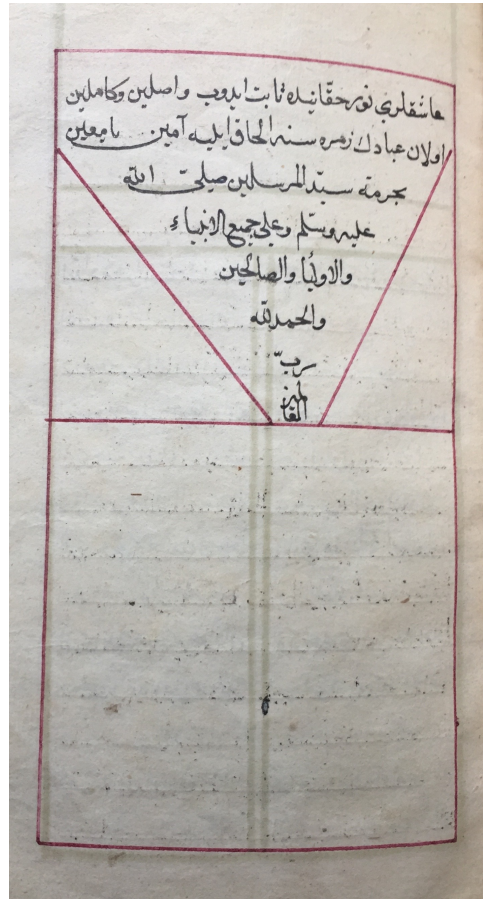 عاشقلری نور حقّانیده ثابت ایدوب واصلین وکاملین
اولان عبادك زمره سنه الحاق ایلیه آمین یا معین
بحرمة سیّد المرسلین صلیّ الله
علیه وسلّم وعلی جمیع الانبیاء
والاولیا والصالحین
والحمد لله
ربّ
العالمین